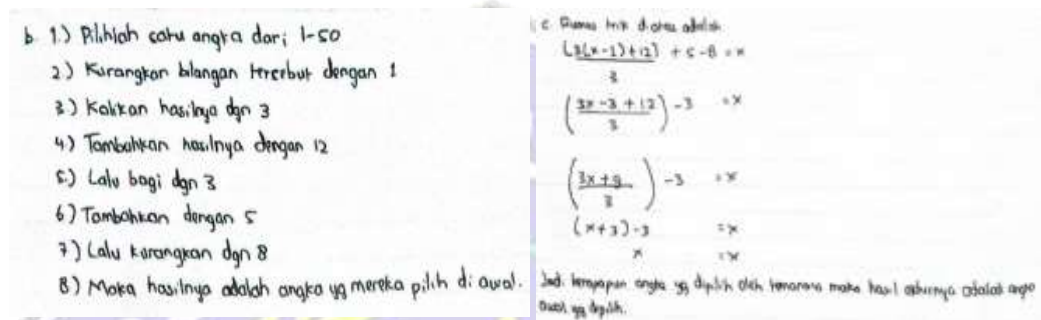 b. 1.) Pilihlah satu angka dari 1-50
2.) Kurangkan bilangan tersebut dengan 1
3.) Kalikan hasilnya dgn 3
4.) Tambahkan hasilnya dengan 12
5.) Lalu bagi dgn 3
6.) Tambahkan dengan 5
7.) Lalu kurangkan dgn 8
8.) Maka hasilnya adalah angka yg mereka pilih di awal.
c. Rumus trik diatas adalah
(3(x-1)+12) + 5-8 = x
3
(3x-3+12) -3 = x
3
(3x+9) -3 = x
3
(x+3)-3 = x
x = x
Jadi berapapun angka yg dipilih oleh temannya maka hasil akhirnya adalah angka
awal yg dipilih.